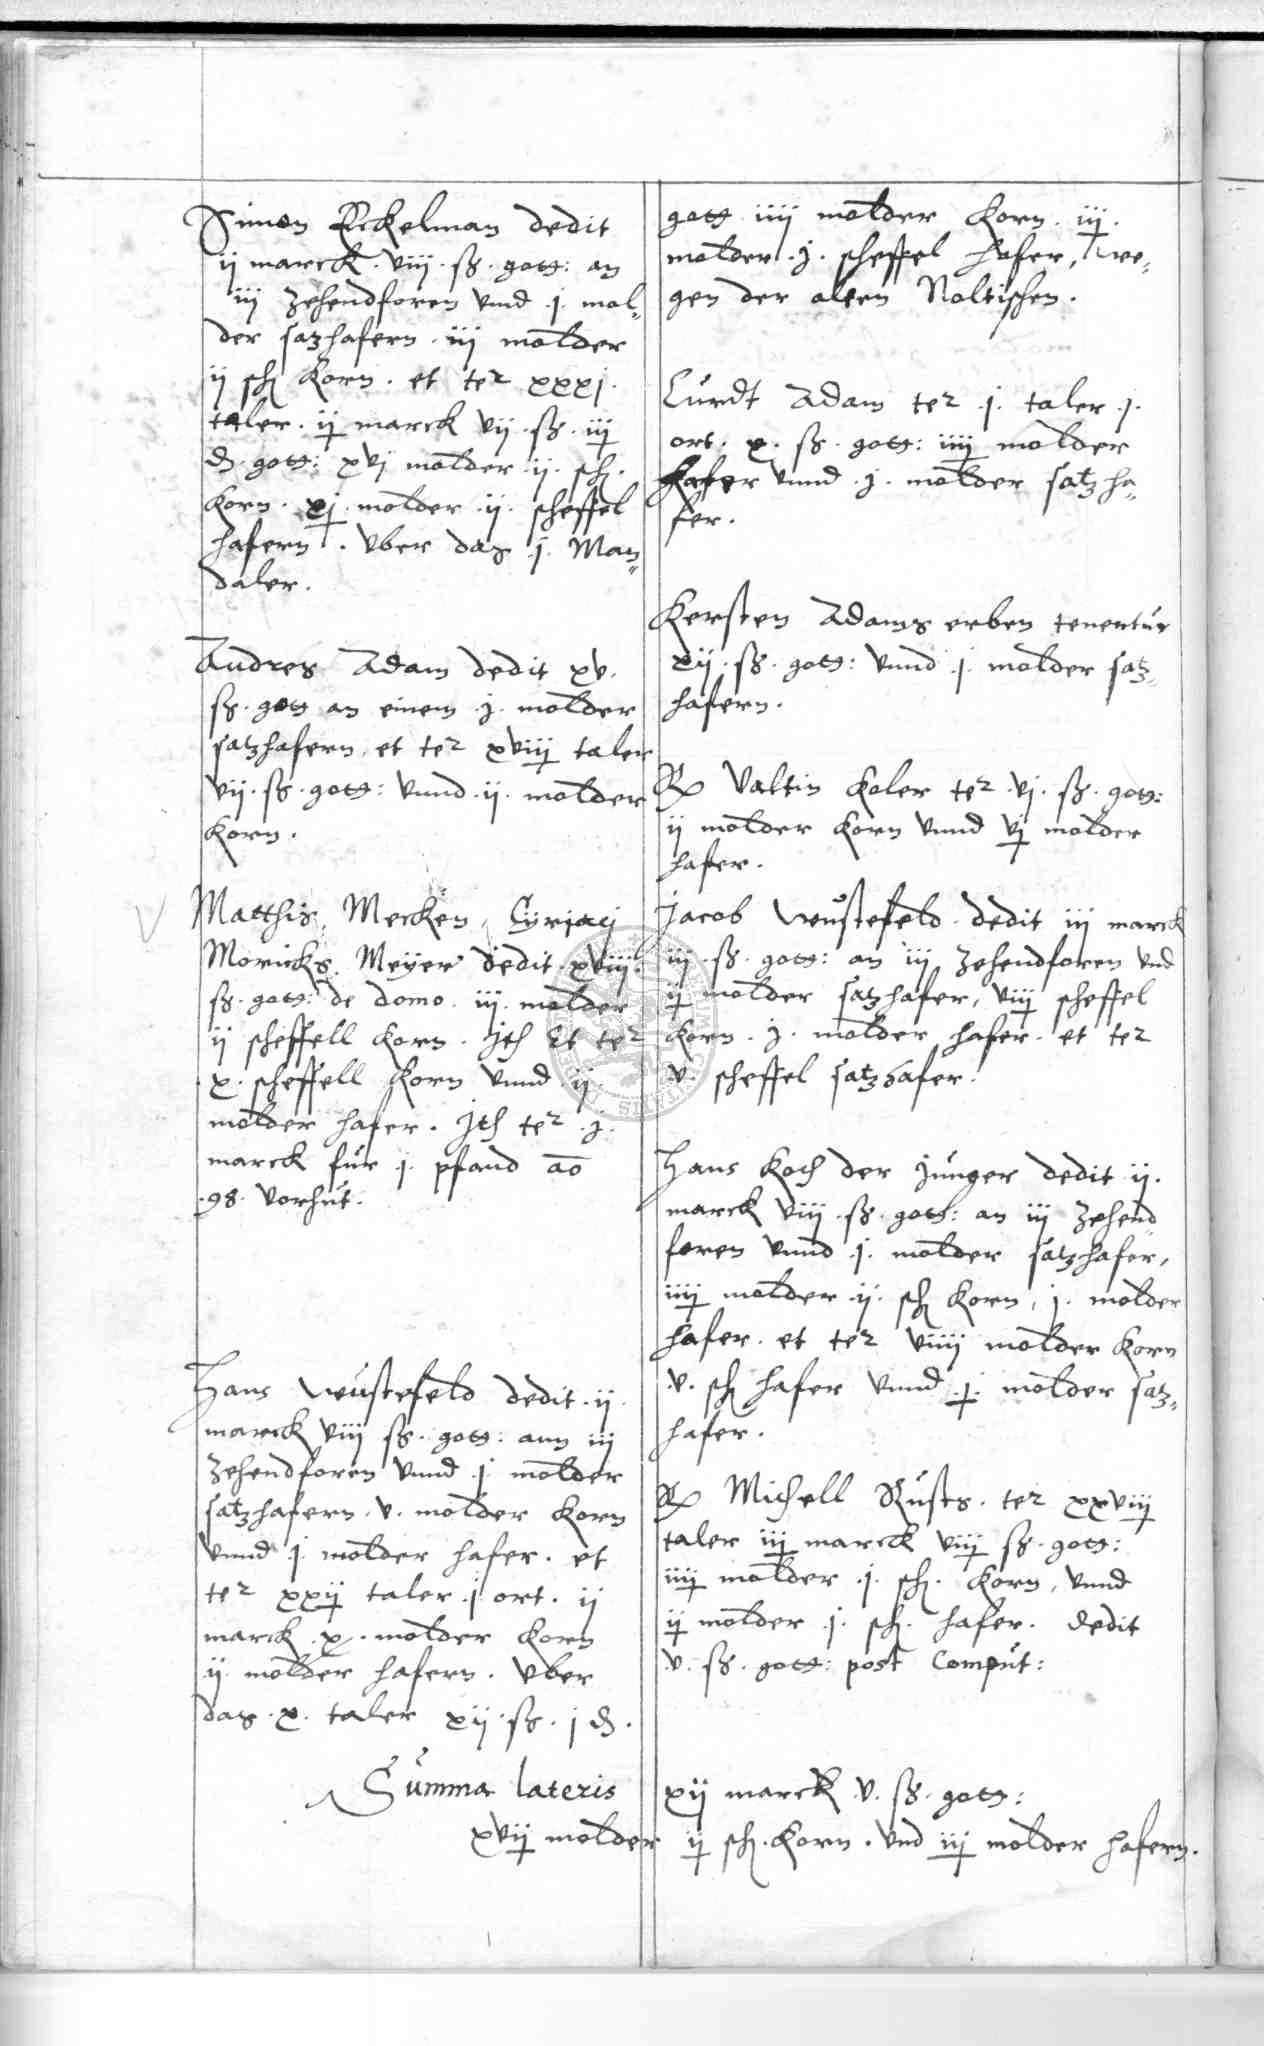 Simon Eckelman dedit
ij marck. viij. ß. gott: an
iij Zehendforen vnnd .j. mol=
der satzhafern. iij molder
ij sch Korn. et te2 xxxj.
taler. ij marck vij. ß. iij
d. gott: xvj molder .ij. sch.
Korn. xj. molder .ij. scheffel
hafern. Vber das .j. Man=
daler.
Andres Adam dedit xv.
ß. gott an einem .j. molder
satzhafern, et te2 xviij taler
vij. ß. gott: vnnd .ij. molder
Korn.
Matthis Mecken, Cyriaci
Moricks Meyer dedit xviij.
ß. gott: de domo. iij. molder
ij scheffell Korn. Jth Et te2
.x. scheffell Korn vnnd .ij.
molder hafer. Jth te2 .j.
marck für .j. pfand ao
.98. vorhut.
Hans Wüstefeld dedit .ij.
marck viij ß. gott: ann iij
Zehendforen vnnd .j. molder
satzhafern. v. molder Korn
vnnd .j. molder hafer. et
te2 xxij taler .j ort. ij
marck .x. molder Korn
ij. molder hafern. Vber
das .x. taler xij. ß. j d.
gott iiij molder Korn. iij.
molder .j. scheffel hafer, we=
gen der altenn Noltischen.
Curdt Adam te2 .j. taler .j.
ort. x. ß. gott: iiij molder
Hafer vnnd .j. molder satzha=
fer.
Kersten Adams erben tenentur
xij. ß. gott: vnnd .j. molder satz=
hafern.
Valtin Koler te2 .vj. ß. gott:
ij molder Korn vnnd vj molder
hafer.
Jacob Wüstefeld dedit iij marck
iij. ß. gott: an iij Zehendforen vnd
ij molder satzhafer, viij scheffel
Korn .j. molder hafer. et te2
.v. scheffel satzhafer.
Hans Koch der Junger dedit .ij.
marck viij. ß. gott: an iij Zehend=
foren vnnd .j. molder satzhafer,
iiij molder .ij. sch Korn, .j. molder
hafer. et te2 viiij molder Korn
.v. sch hafer vnnd .j. molder satz=
hafer.
Michell Rusts. te2 xxviij
taler iij marck viij ß. gott:
iiij molder .j. sch. Korn, vnnd
ij molder .j. sch. hafer. dedit
.v. ß. gott: post Comput:
Summa lateris xij marck .v. ß. gott:
xvij molder ij sch. Korn. vnd iij molder hafern.